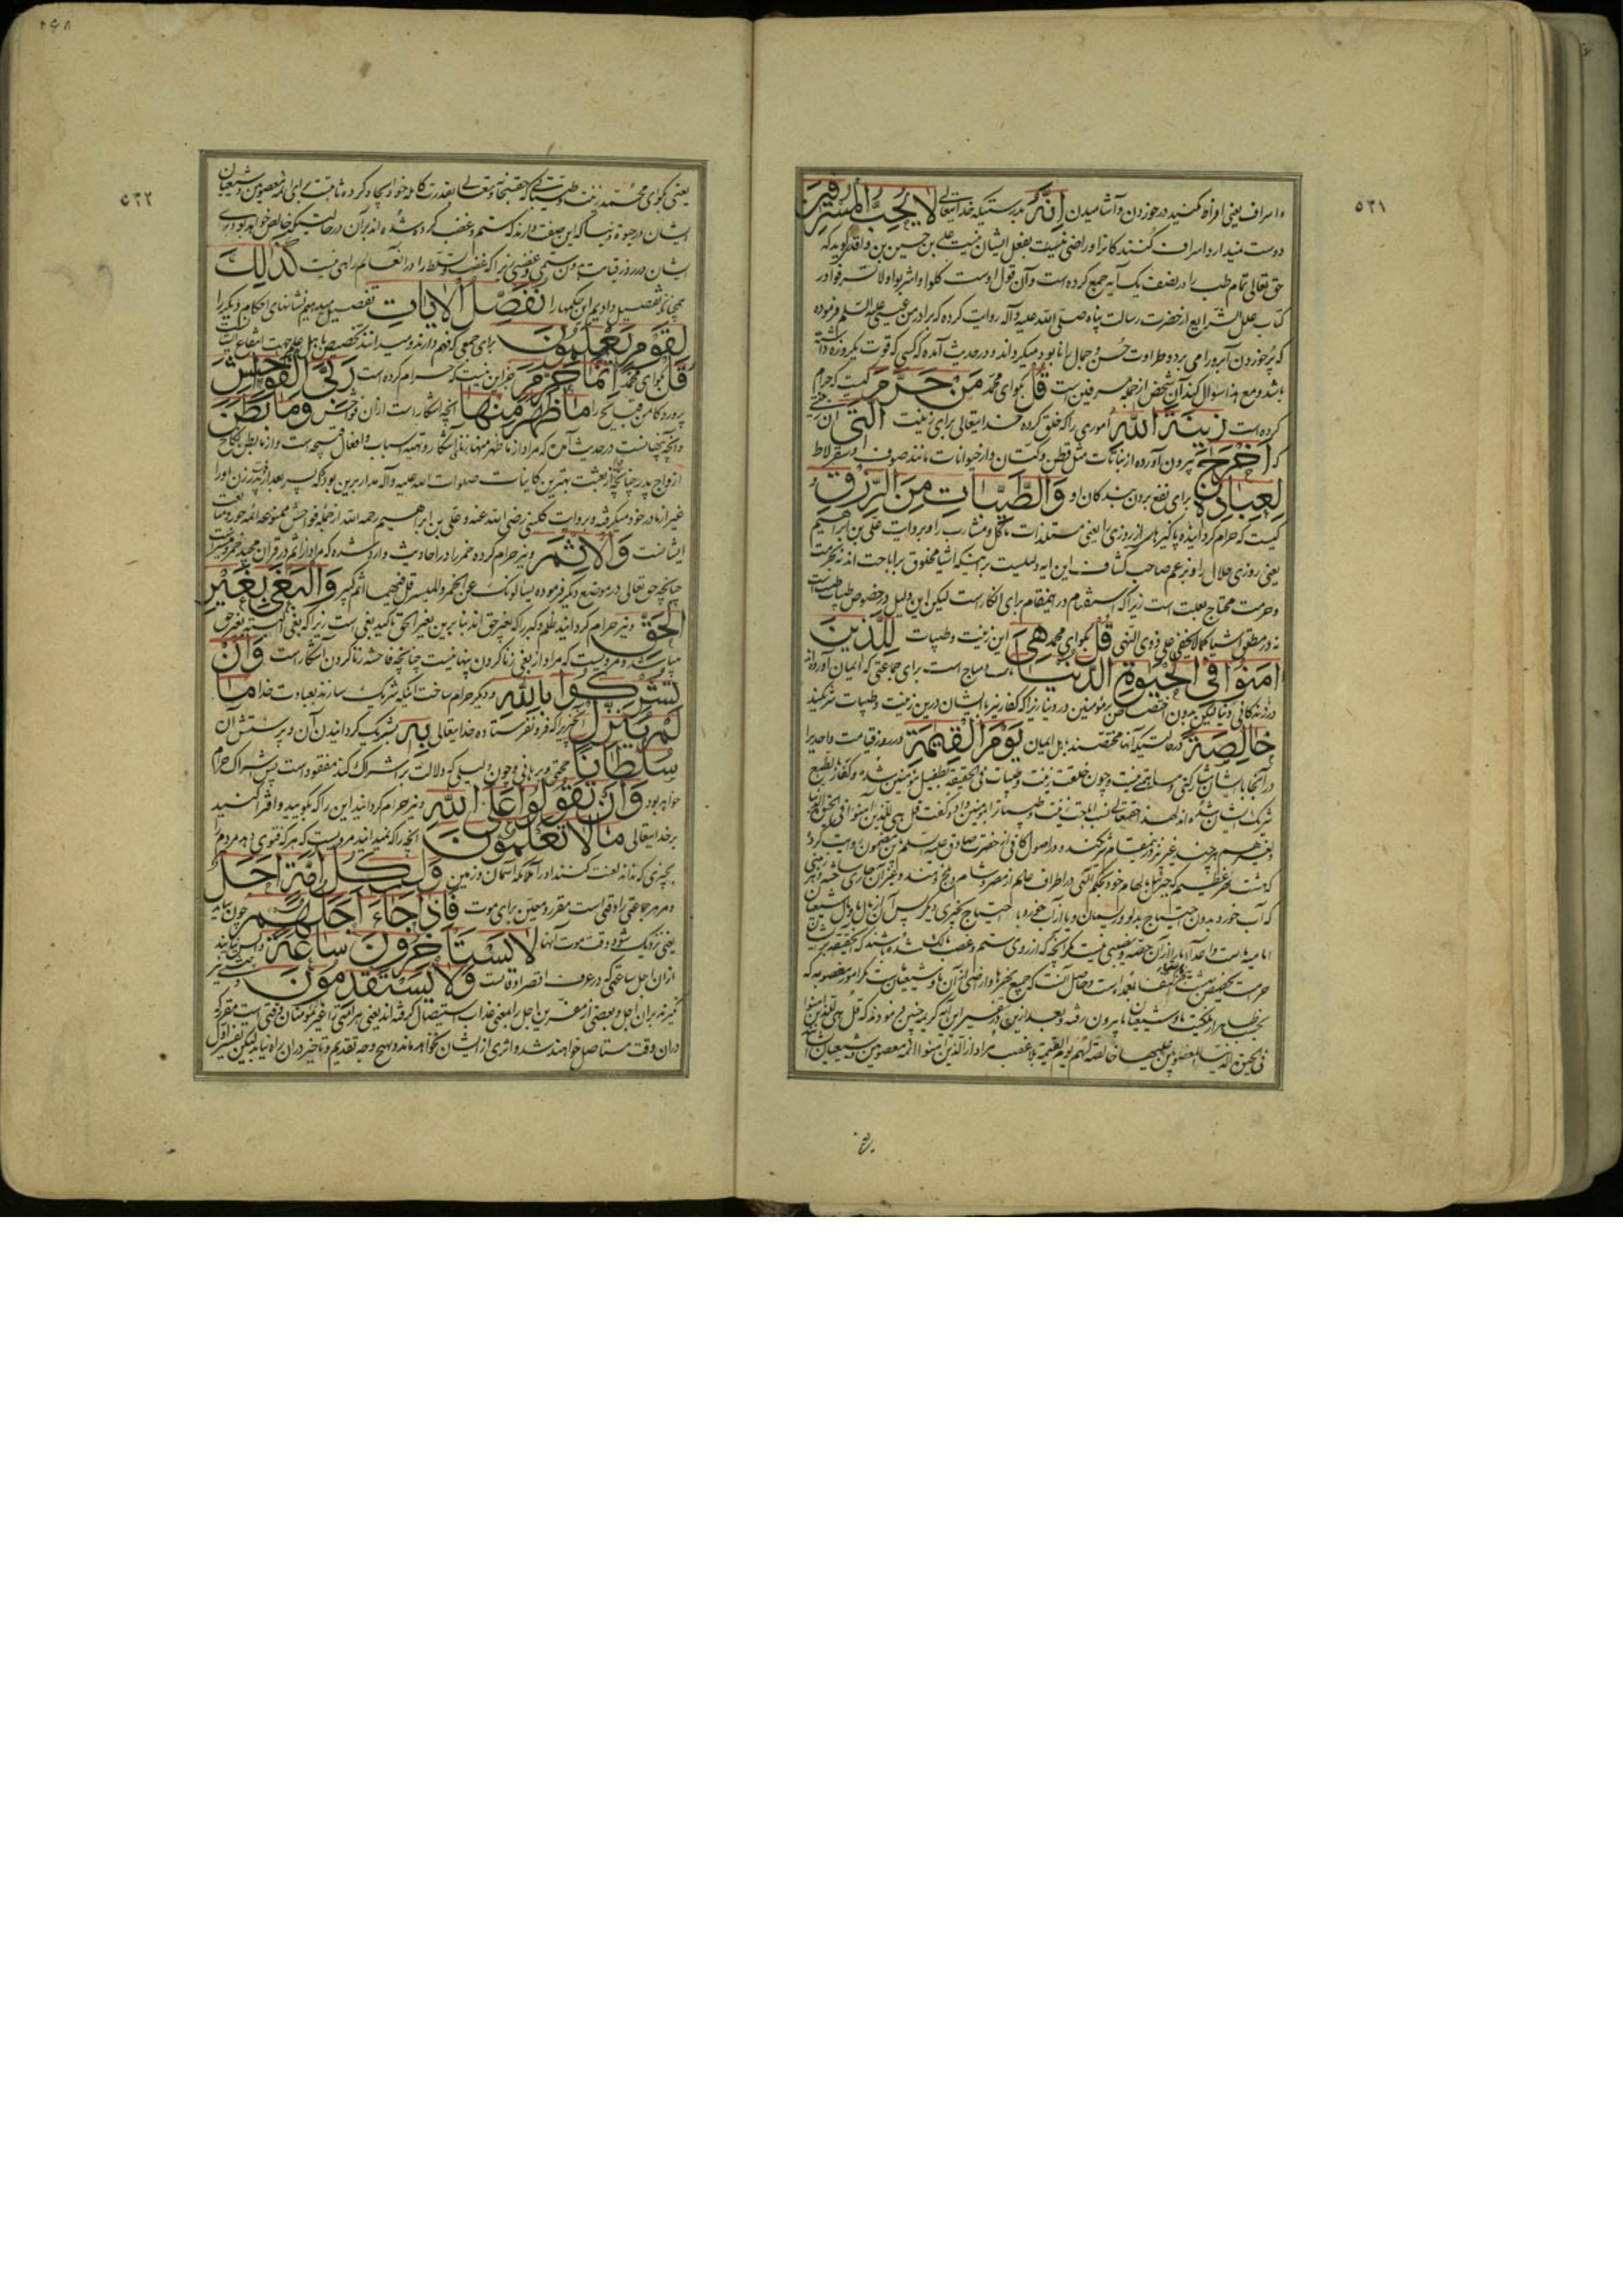 ۵۲۱
و اسراف یعنی افراط مکنید در خوردن و آشامیدن اِنَّهُ بدرستیکه خدایتعالی لا یُحِبُّ المُسْرِفینَ
دوست نمیدارد اسراف کنندکانرا و راضی نیست بفعل ایشان علی بن حسین بن واقد کوید که
حق تعالی تمام طب را در نصف یک آیه جمع کرده است و آن قول اوست کلوا و اشربوا و لا تسرفوا و در
کتاب علل الشرایع از حضرت رسالت پناه صلی الله علیه و آله روایت کرده که برادر من عیسی علیه السلم فرموده
که پُر خوردن آبرو را می برد و طراوت حُسن و جمال را نابود میکرداند و در حدیث آمده که کسی که قوت یکروزه داشته
باشد و مع هذا سؤال کند آن شخص از جمله مسرفین است قُلْ بکو ای محمّد مَنْ حَرَّمَ کیست که حرام
کرده است زینَةَ اللّهِ اموری را که خلق کرده خدایتعالی برای زینت الَّتی آن زینتی
که اَخْرَجَ بیرون آورده از نباتات مثل قطن و کتان و از حیوانات مانند صوف و سقرلاط
لِعِبادِهِ برای نفع بردن بندکان او وَالطَّیِّباتِ مِنَ الرِّزْقِ و
کیست که حرام کردانیده پاکیزهای از روزی را یعنی مستلذات مآکل و مشارب را و بروایت علی بن ابراهیم
یعنی روزی حلال را و بزعم صاحب کشاف این آیه دلیلیست بر اینکه اشیا مخلوق بر اباحت اند نه بر حرمت
و حرمت محتاج بعلت است زیرا که استفهام در اینمقام برای انکار است لیکن این دلیل در خصوص طیبات است
نه در مطلق اشیا کما لا یخفی علی ذوی النهی قُلْ بکو ای محمد هِیَ این زینت و طیبات لِلَّذینَ
امَنُوا فِی الْحَیوةِ الدُّنْیا مباح است برای جماعتی که ایمان آورده اند
در زندکانی دنیا لیکن بدون اختصاص بمؤمنین در دنیا زیرا که کفار نیز با ایشان درین زینت و طیبات شریکند
خالِصَةً در حالتیکه آنها مختصند باهل ایمان یَوْمَ الْقِیمَةِ در روز قیامت و احدیرا
در آنجا با ایشان مشارکتی و مساهمتی نیست و چون خلقت زینت و طیبات فی الحقیقه بطفیل مؤمنین شده و کفار بالطبع
شریک ایشان شده اند لهذا حقتعالی نسبت اباحت زینت و طیبات را بمؤمنین داد و کفت قل هی للذین آمنوا فی الحیوة الدنیا
و لغیرهم هر چند غیر نیز در ینمقام شریکند و در اصول کافی از حضرت صادق علیه السلم این مضمون روایت کرده
که هشت نهر عظیم که جبرئیل بابهام خود بحکم الهی در اطراف عالم از مصر و شام و بلخ و هند و غیر آن جاری ساخته و هر زمینی
که آب خورد بدون احتیاج بدلو و ریسمان و یا از آب خورد با احتیاج بچیزی دیکر پس آن از مال ما و مال شیعیان
امامیه است و اعدآء ما را از آن حصه و نصیبی نیست مکر آنچه که از روی ستم و غصب مالک شده باشند که اینقسم بر ایشان
حرام است و حاصل آنست که جمیع نهرها و اراضی از آن ما و شیعیان ماست
بحسب ظاهر از ملکیت ما و شیعیان ما بیرون رفته و بعد ازین در تفسیر این آیه کریمه چنین فرمودند که قل هی للذین امنوا
فی الحیوة الدنیا المغصوبین علیها خالصة لهم یوم القیمة بلا غصب مراد از الذین امنوا ائمه معصومین و شیعیان ایشانند
۵۲۲
یعنی بکو ای محمّد زینت و طیباتی که حقسبحانه و تعالی بقدرت کامله خود ایجاد کرده ثابتست برای ائمه معصومین و شیعیان
ایشان در حیوة دنیا که این صفت دارند که ستم و غصب کرده شده اند بر آن در حالتیکه خالص خواهد بود برای
ایشان در روز قیامت بدون ستمی و غصبی زیرا که غصب و تسلط را در آنعالم راهی نیست کَذلِکَ
همچنانکه تفصیل دادیم این حکمها را نُفَصِّلُ الْایاتِ تفصیل میدهیم نشانهای احکام دیکر را
لِقَوْمٍ یَعْلَمُونَ برای جمعی که فهم دارند و میدانند تخصیص باهل علم جهت انتفاع ایشانست
قُلْ بکو ای محمّد اِنَّما حَرَّمَ جز این نیست که حرام کرده است رَبِّیَ الْفَواحِشَ
پروردکار من قبایح را ما ظَهَرَ مِنْها آنچه آشکار است از آن فواحش وَما بَطَنَ
و آنچه پنهانست در حدیث آمده که مراد از ما ظهر منها زنای آشکار و تهیه اسباب و افعال قبیحه است و از ما بطن نکاح
ازواج پدر چنانچه قبل از بعثت بهترین کاینات صلوات الله علیه و آله مدار برین بود که پسر بعد از فوت پدر زن او را
غیر از مادر خود میکرفته و بروایت کلینی رضی الله عنه و علی بن ابراهیم رحمه الله از جمله فواحش ممنوعه ائمه جور و متابعت
ایشانست وَالْاِثْمَ و نیز حرام کرده خمر را در احادیث وارد شده که مراد از اثم در قرآن مجید خمر و میسر است
چنانچه حق تعالی در موضع دیکر فرموده یسألونک عن الخمر و المیسر قل فیهما اثم کبیر وَالْبَغْیَ بِغَیْرِ
الْحَقِّ و نیز حرام کردانید ظلم و کبر را که بغیر حق اند بنا برین بغیر الحق تأکید بغی است زیرا که بغی البته بغیر حق
میباشد و مرویست که مراد از بغی زنا کردن پنهانیست چنانچه فاحشه زنا کردن آشکار است وَاَنْ
تُشْرِکُوا بِاللّهِ و دیکر حرام ساخت اینکه شریک سازند بعبادت خدا ما
لَمْ یُنَزِّلْ آنچیزی را که فرو نفرستاده خدایتعالی بِهِ بشریک کردانیدن آن و پرستش آن
سُلْطاناً حجتی و برهانی و چون دلیلی که دلالت بر اشراک کند مفقود است پس اشراک حرام
خواهد بود وَاَنْ تَقُولُوا عَلَی اللّهِ و نیز حرام کردانید این را که بکویید و افترا کنید
بر خدایتعالی ما لا تَعْلَمُونَ آنچه را که نمیدانید مرویست که هر که فتوی دهد مردم را
بچیزی که نداند لعنت کنند او را ملائکه آسمان و زمین وَلِکُلِّ اُمَّةٍ اَجَلٌ
و مر هر جماعتی را وقتی است مقرر و معین برای موت فَاِذا جاءَ اَجَلُهُمْ چون بیاید
یعنی نزدیک شود وقت موت آنها لا یَسْتَأْخِرُونَ ساعَةً واپس نمانند
از آن اجل ساعتی که در عرف اقصر اوقاتست وَلا یَسْتَقْدِمُونَ و پیشی نیز
نکیرند بر آن اجل و بعضی از مفسرین اجل را بمعنی عذاب استیصال کرفته اند یعنی هر امتی را غیر مؤمنان وقتی است مقرر که
در آن وقت مستأصل خواهند شد و اثری از ایشان نخواهد ماند و بهیچ وجه تقدیم و تأخیر در آن راه نیابد لیکن تفسیر اول